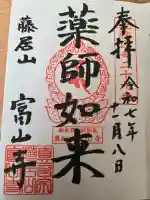 奉拝
令和七年
十一月八日
薬師如来
藤居山
富山寺